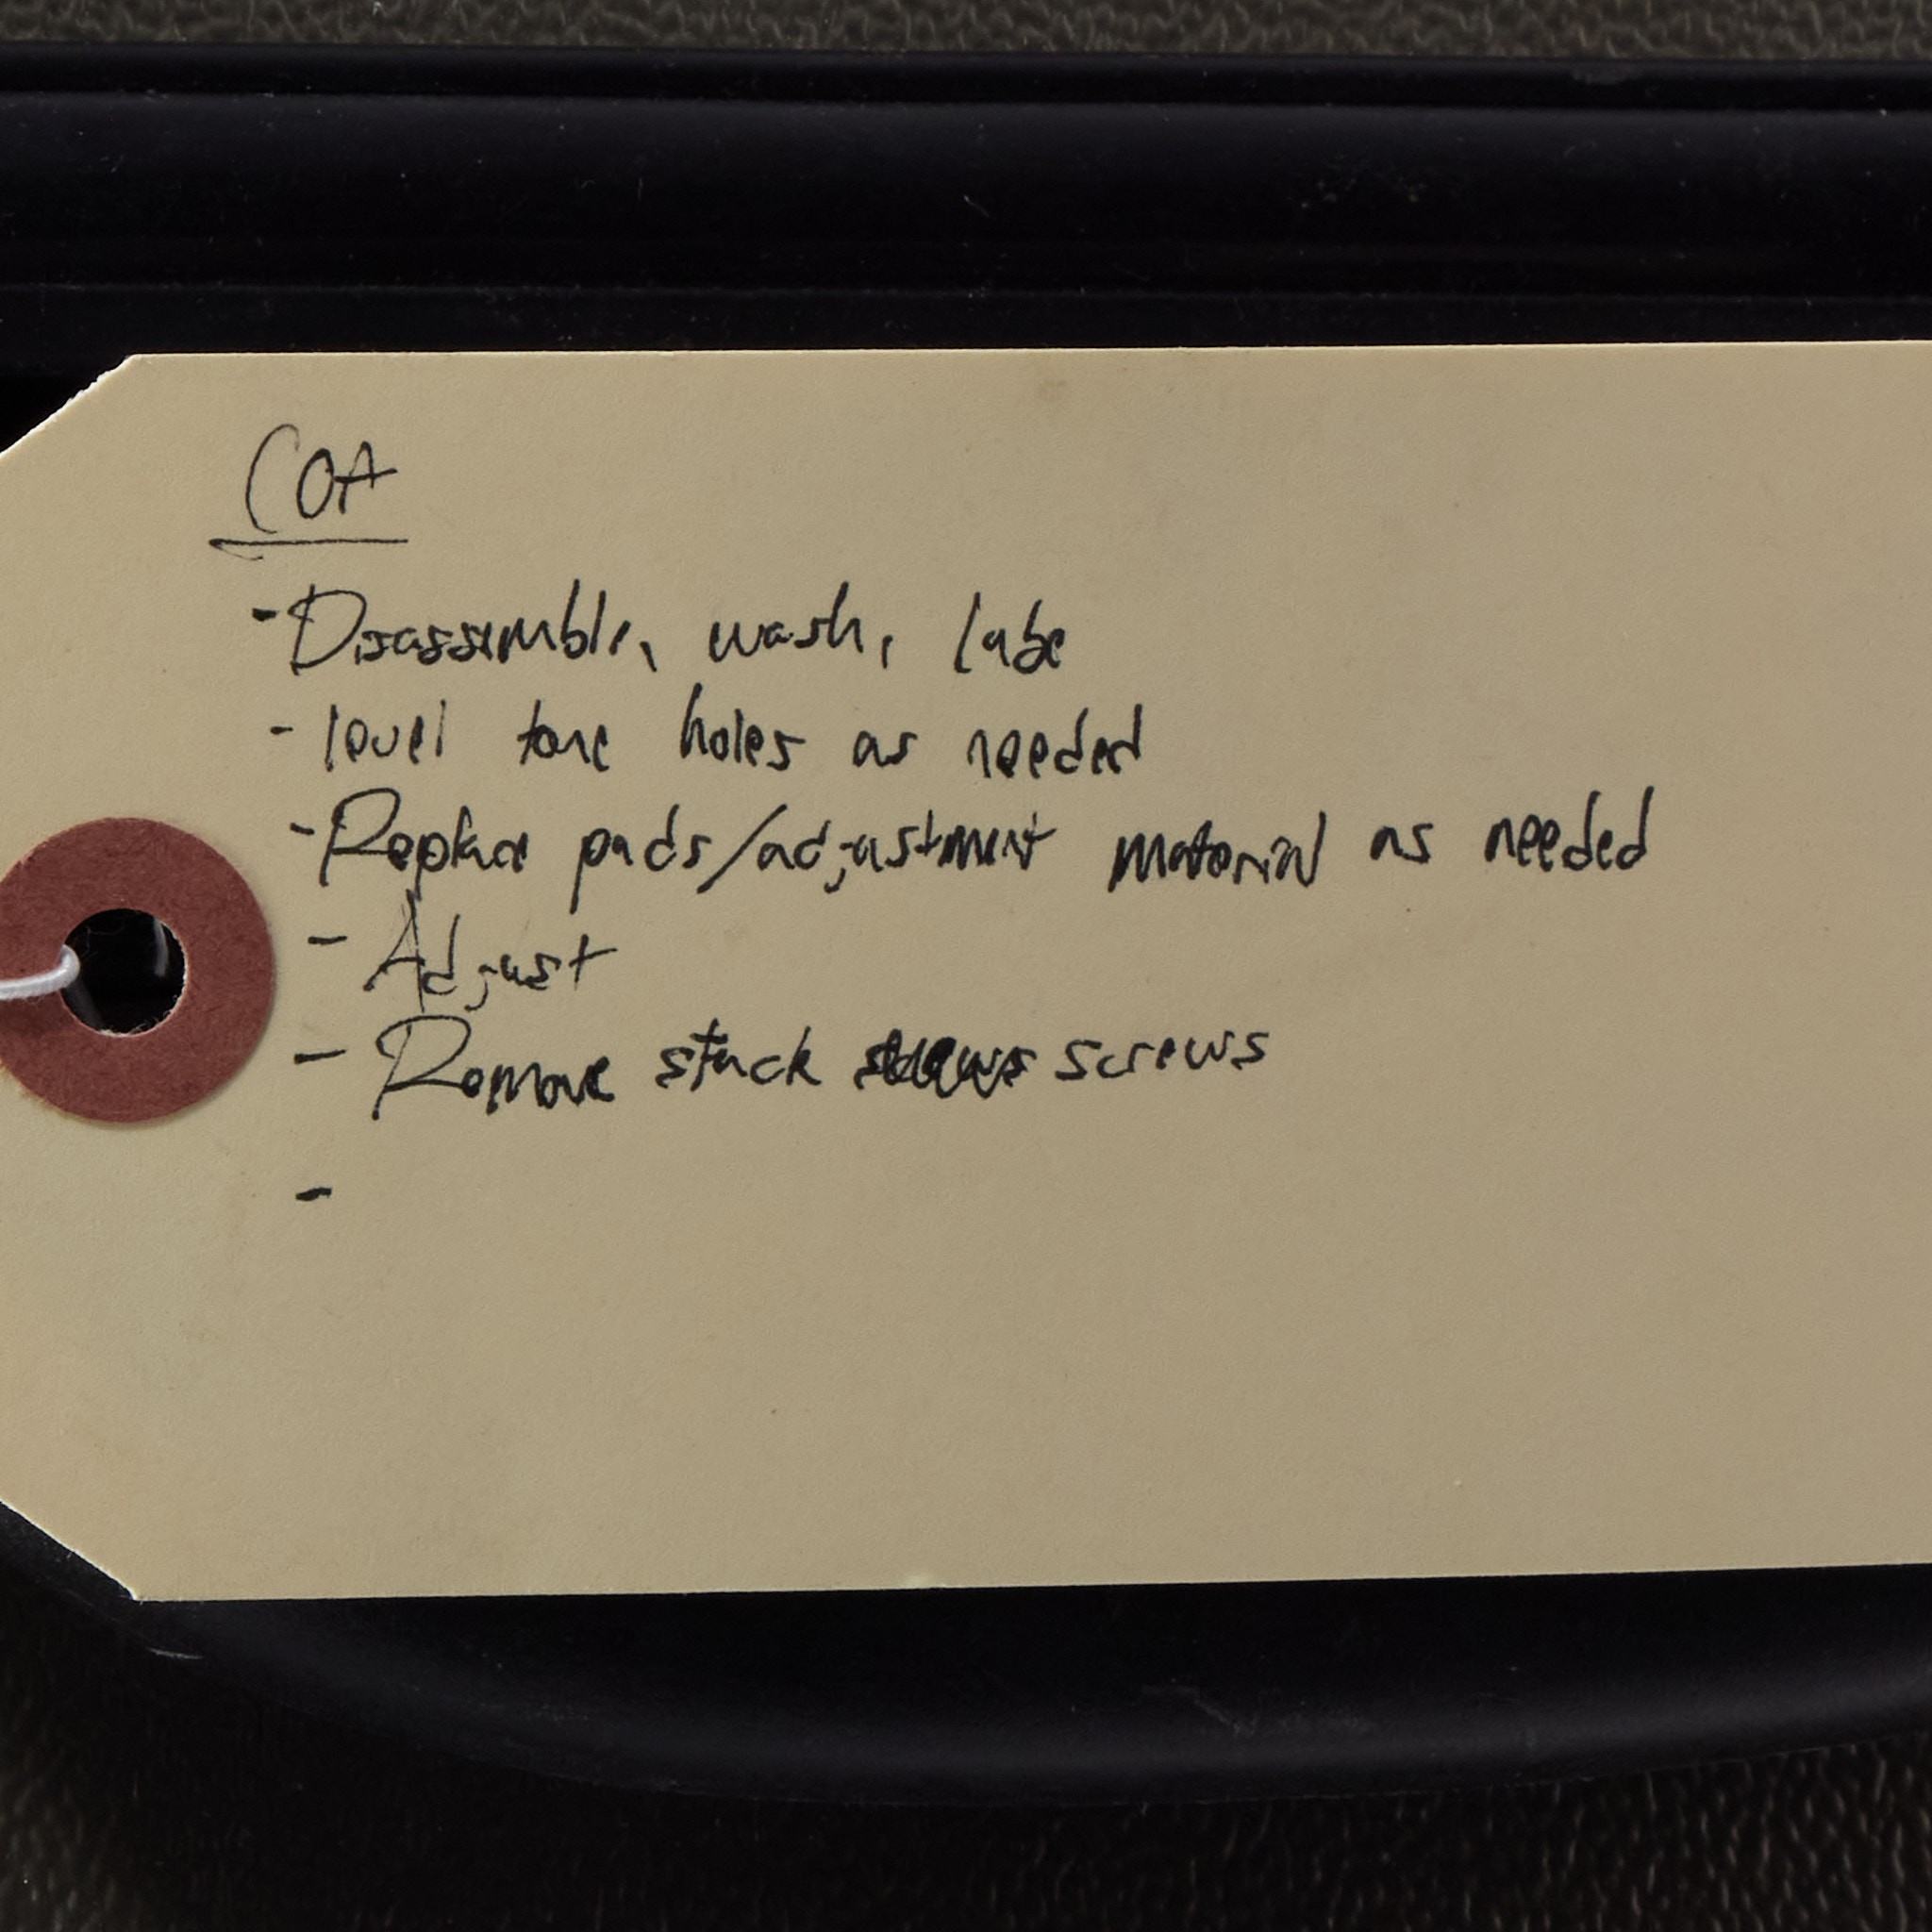 COA
- Disassemble, wash, lube
- level tone holes as needed
- Replace pads/adjustment material as needed
- Adjust
- Remove stuck screws
-